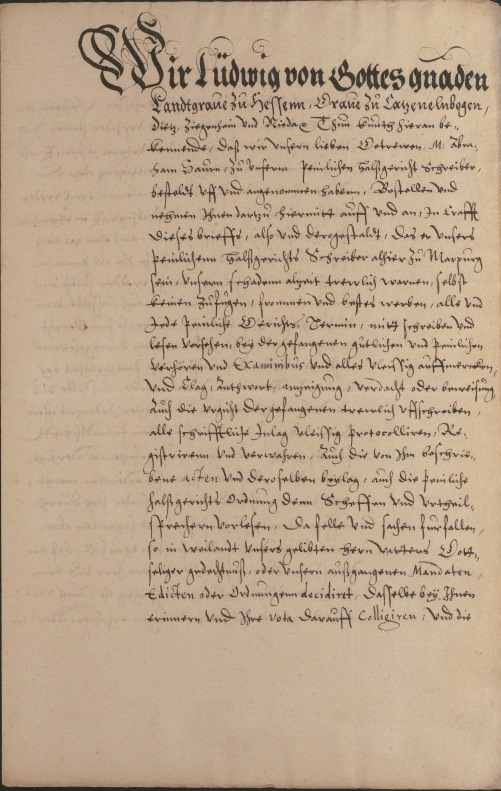 Wir Ludwig von Gottes gnaden
Landtgraue zu Hessenn, Graue zu Catzenelnbogen,
Dietz, Ziegenhain vnd Nidda ꝛc Thun kundt hieran be-
kennende, daß wir vnsern lieben Getrewen, M: Abra-
ham Saurn, zu vnserm Peinlichen Halßgericht Schreiber,
besteldt vff vnd angenommen habenn, Bestellen vnd
nehmen Ihnen dartzu hiermitt auff vnd an, In Crafft
dieses brieffs, also vnd dergestaldt, Das er vnsers
Peinlichenn Halßgerichts Schreiber alhier zu Marpurg
sein, vnsern schadenn alzeit trewlich warnen, selbst
keinen zufugen, frommen vnd bestes werben, alle vnd
Jede Peinliche Gerichts Termin, mitt schreiben vnd
lesen versehen, bey der gefangenen gütlichen vnd Peinlichen
verhören vnd Examinibus vnd alles vleissig auffmercken,
vnd Clag, Anthwort, anzeigung, verdacht oder beweisung
Auch die vrgicht der gefangenen trewlich vffschreiben,
alle schrifftliche Inlag vleissig protocolliren, Re-
gistrirenn vnd verwahren, Auch die von Ihm beschrie-
bene Acten vnd deroselben beylag, auch die Peinliche
Halßgerichts Ordnung denn Scheffen vnd Vrtheil-
sprechern vorlesen, Da felle vnd sachen furfallen,
so in weilandt vnsers gelibten Hern Vatters Gott-
seliger gedechtnus, oder vnsern außgangenen Mandaten,
Edicten oder Ordnungenn decidiret, Dasselbe bey Ihnen
erinnern vnd Ihre vota darauff Colligiren, Vnd die